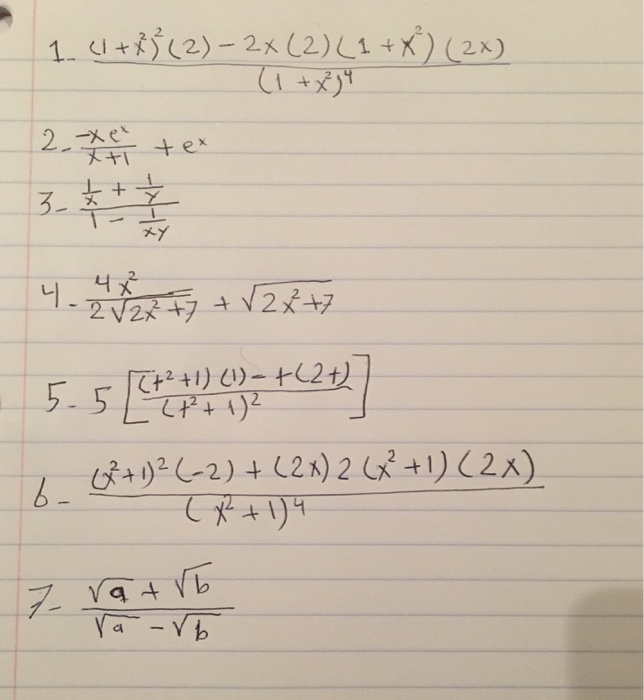 1- ((1+x²)²(2) - 2x(2)(1+x²)(2x))/(1+x²)⁴
2- (-xeˣ)/(x+1) + eˣ
3- (1/x + 1/y)/(1 - 1/xy)
4- 4x²/(2√(2x²+7)) + √(2x²+7)
5- 5[((t²+1)(1) - t(2t))/(t²+1)²]
6- ((x²+1)²(-2) + (2x)2(x²+1)(2x))/(x²+1)⁴
7- (√a + √b)/(√a - √b)